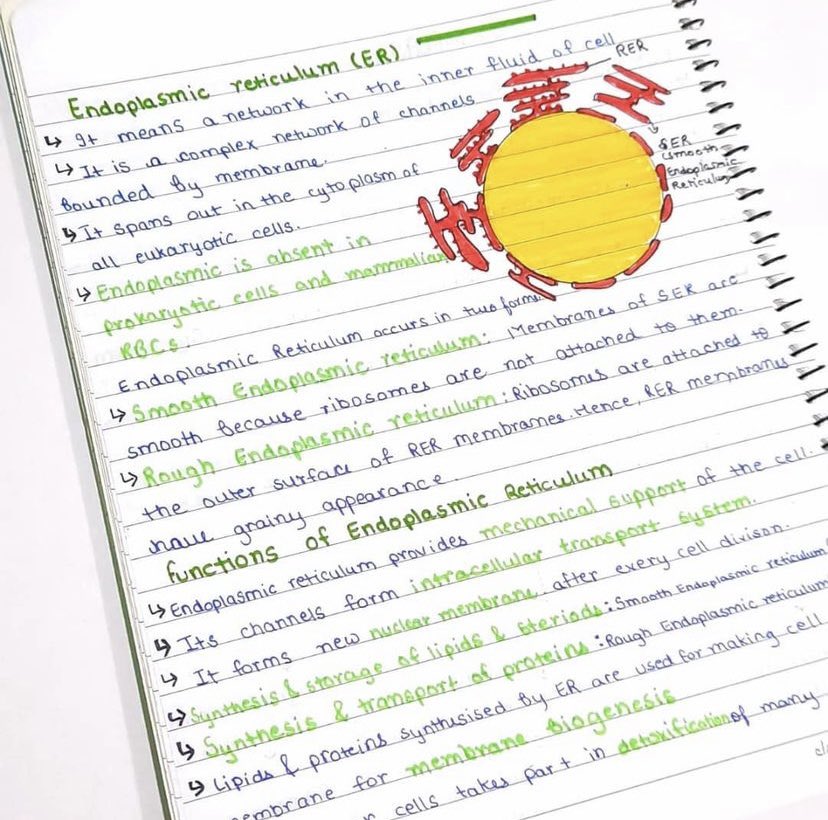 Endoplasmic reticulum (ER)
↳ It means a network in the inner fluid of cell
↳ It is a complex network of channels
bounded by membrane.
↳ It spans out in the cytoplasm of
all eukaryotic cells.
↳ Endoplasmic is absent in
prokaryotic cells and mammalian
RBCs
RER
SER
(smooth
Endoplasmic
Reticulum
Endoplasmic Reticulum occurs in two forms.
↳ Smooth Endoplasmic reticulum: Membranes of SER are
smooth because ribosomes are not attached to them.
↳ Rough Endoplasmic reticulum: Ribosomes are attached to
the outer surface of RER membranes. Hence, RER membranes
have grainy appearance.
functions of Endoplasmic Reticulum
↳ Endoplasmic reticulum provides mechanical support of the cell.
↳ Its channels form intracellular transport system.
↳ It forms new nuclear membrane after every cell divison.
↳ Synthesis & storage of lipids & steriods: Smooth Endoplasmic reticulum
↳ Synthesis & transport of proteins: Rough Endoplasmic reticulum
↳ Lipids & proteins synthisised by ER are used for making cell
membrane for membrane biogenesis
cells takes part in detoxification of many